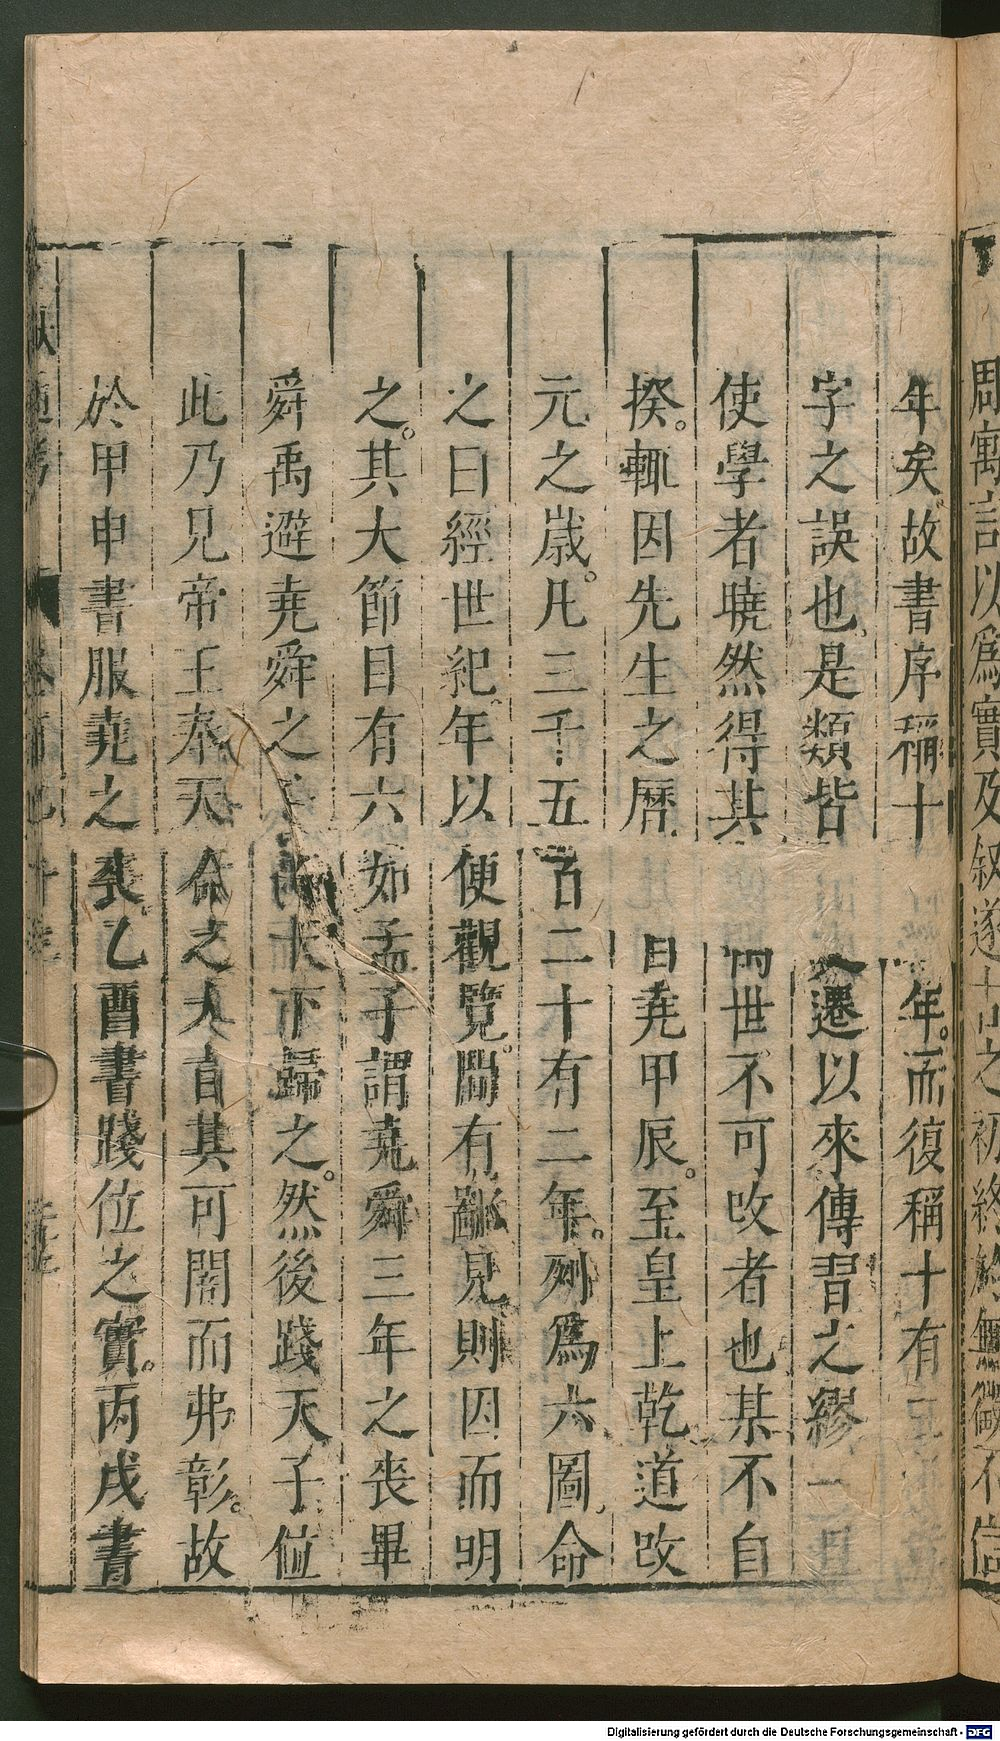 年矣故書序稱十　年。而復稱十有
字之誤也是類皆　遷以來傳習之繆一旦
使學者曉然得其　世不可攷者也某不自
揆。輒因先生之曆　自堯甲辰。至皇上乾道改
元之歲。凡三千五百二十有二年。列爲六圖命
之曰經世紀。年以便觀覽。間有鄙見則因而明
之。其大節目有六如孟子謂堯舜三年之喪畢
舜禹避堯舜之子　天下歸之。然後踐天子位
此乃見帝王奉天命之大旨其可闇而弗彰。故
於甲申書服堯之喪。乙酉書踐位之實。丙戌書
Digitalisierung gefördert durch die Deutsche Forschungsgemeinschaft - DFG